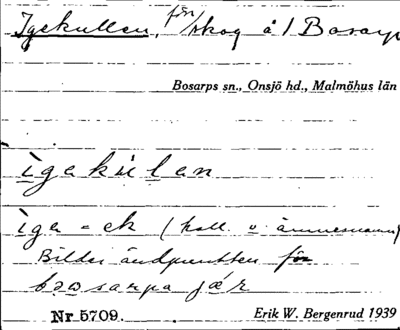 Igekullen, för/skog å/Bosarp
Bosarps sn., Onsjö hd., Malmöhus län
ìgakúlan
ìga = ek (kall. v. ämnesmann)
Bildar ändpunkten för
bosarpa jär
Nr 5709. Erik W. Bergenrud 1939